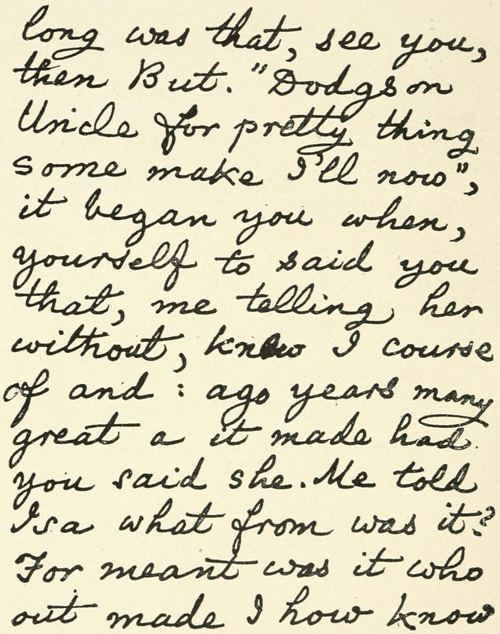 long was that, see you,
then But. "Dodgson
Uncle for pretty thing
some make I'll now",
it began you when,
yourself to said you
that, me telling her
without, know I course
of and : ago years many
great a it made had
you said she. Me told
Isa what from was it?
For meant was it who
out made I how know